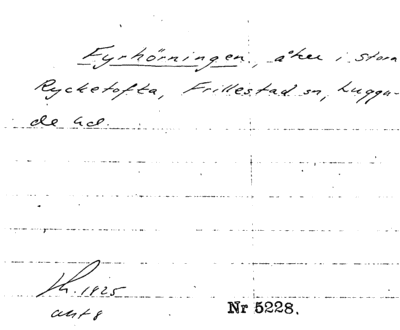 Fyrhörningen, åker i Stora
Rycketofta, Frillestad sn, Luggu-
de hd.
1825
akt 8
Nr 5228.